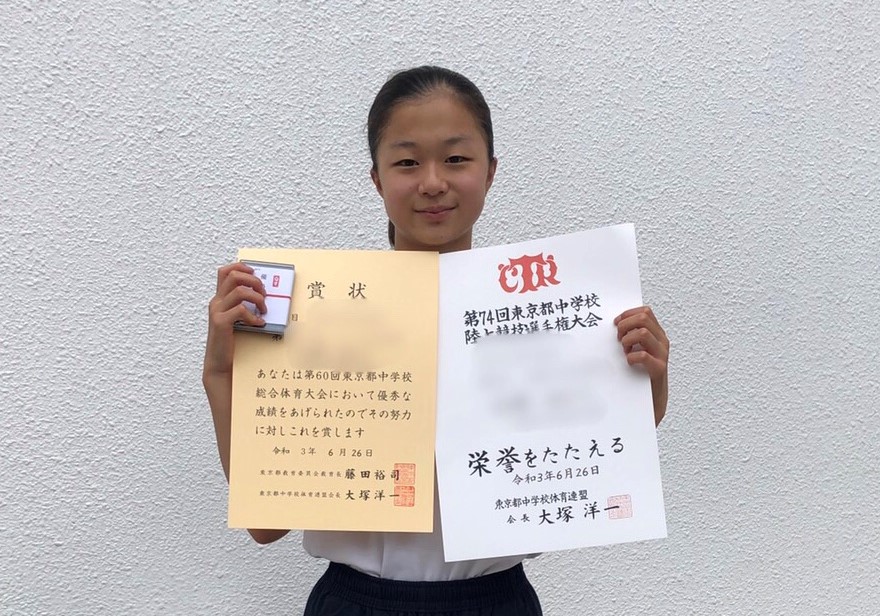 賞状
日
第
あなたは第60回東京都中学校
総合体育大会において優秀な
成績をあげられたのでその努力
に対しこれを賞します
令和 3年 6月26日
東京都教育委員会教育長 藤田裕司
東京都中学校体育連盟会長 大塚洋一
第74回東京都中学校
陸上競技選手権大会
栄誉をたたえる
令和3年6月26日
東京都中学校体育連盟
会長 大塚 洋一